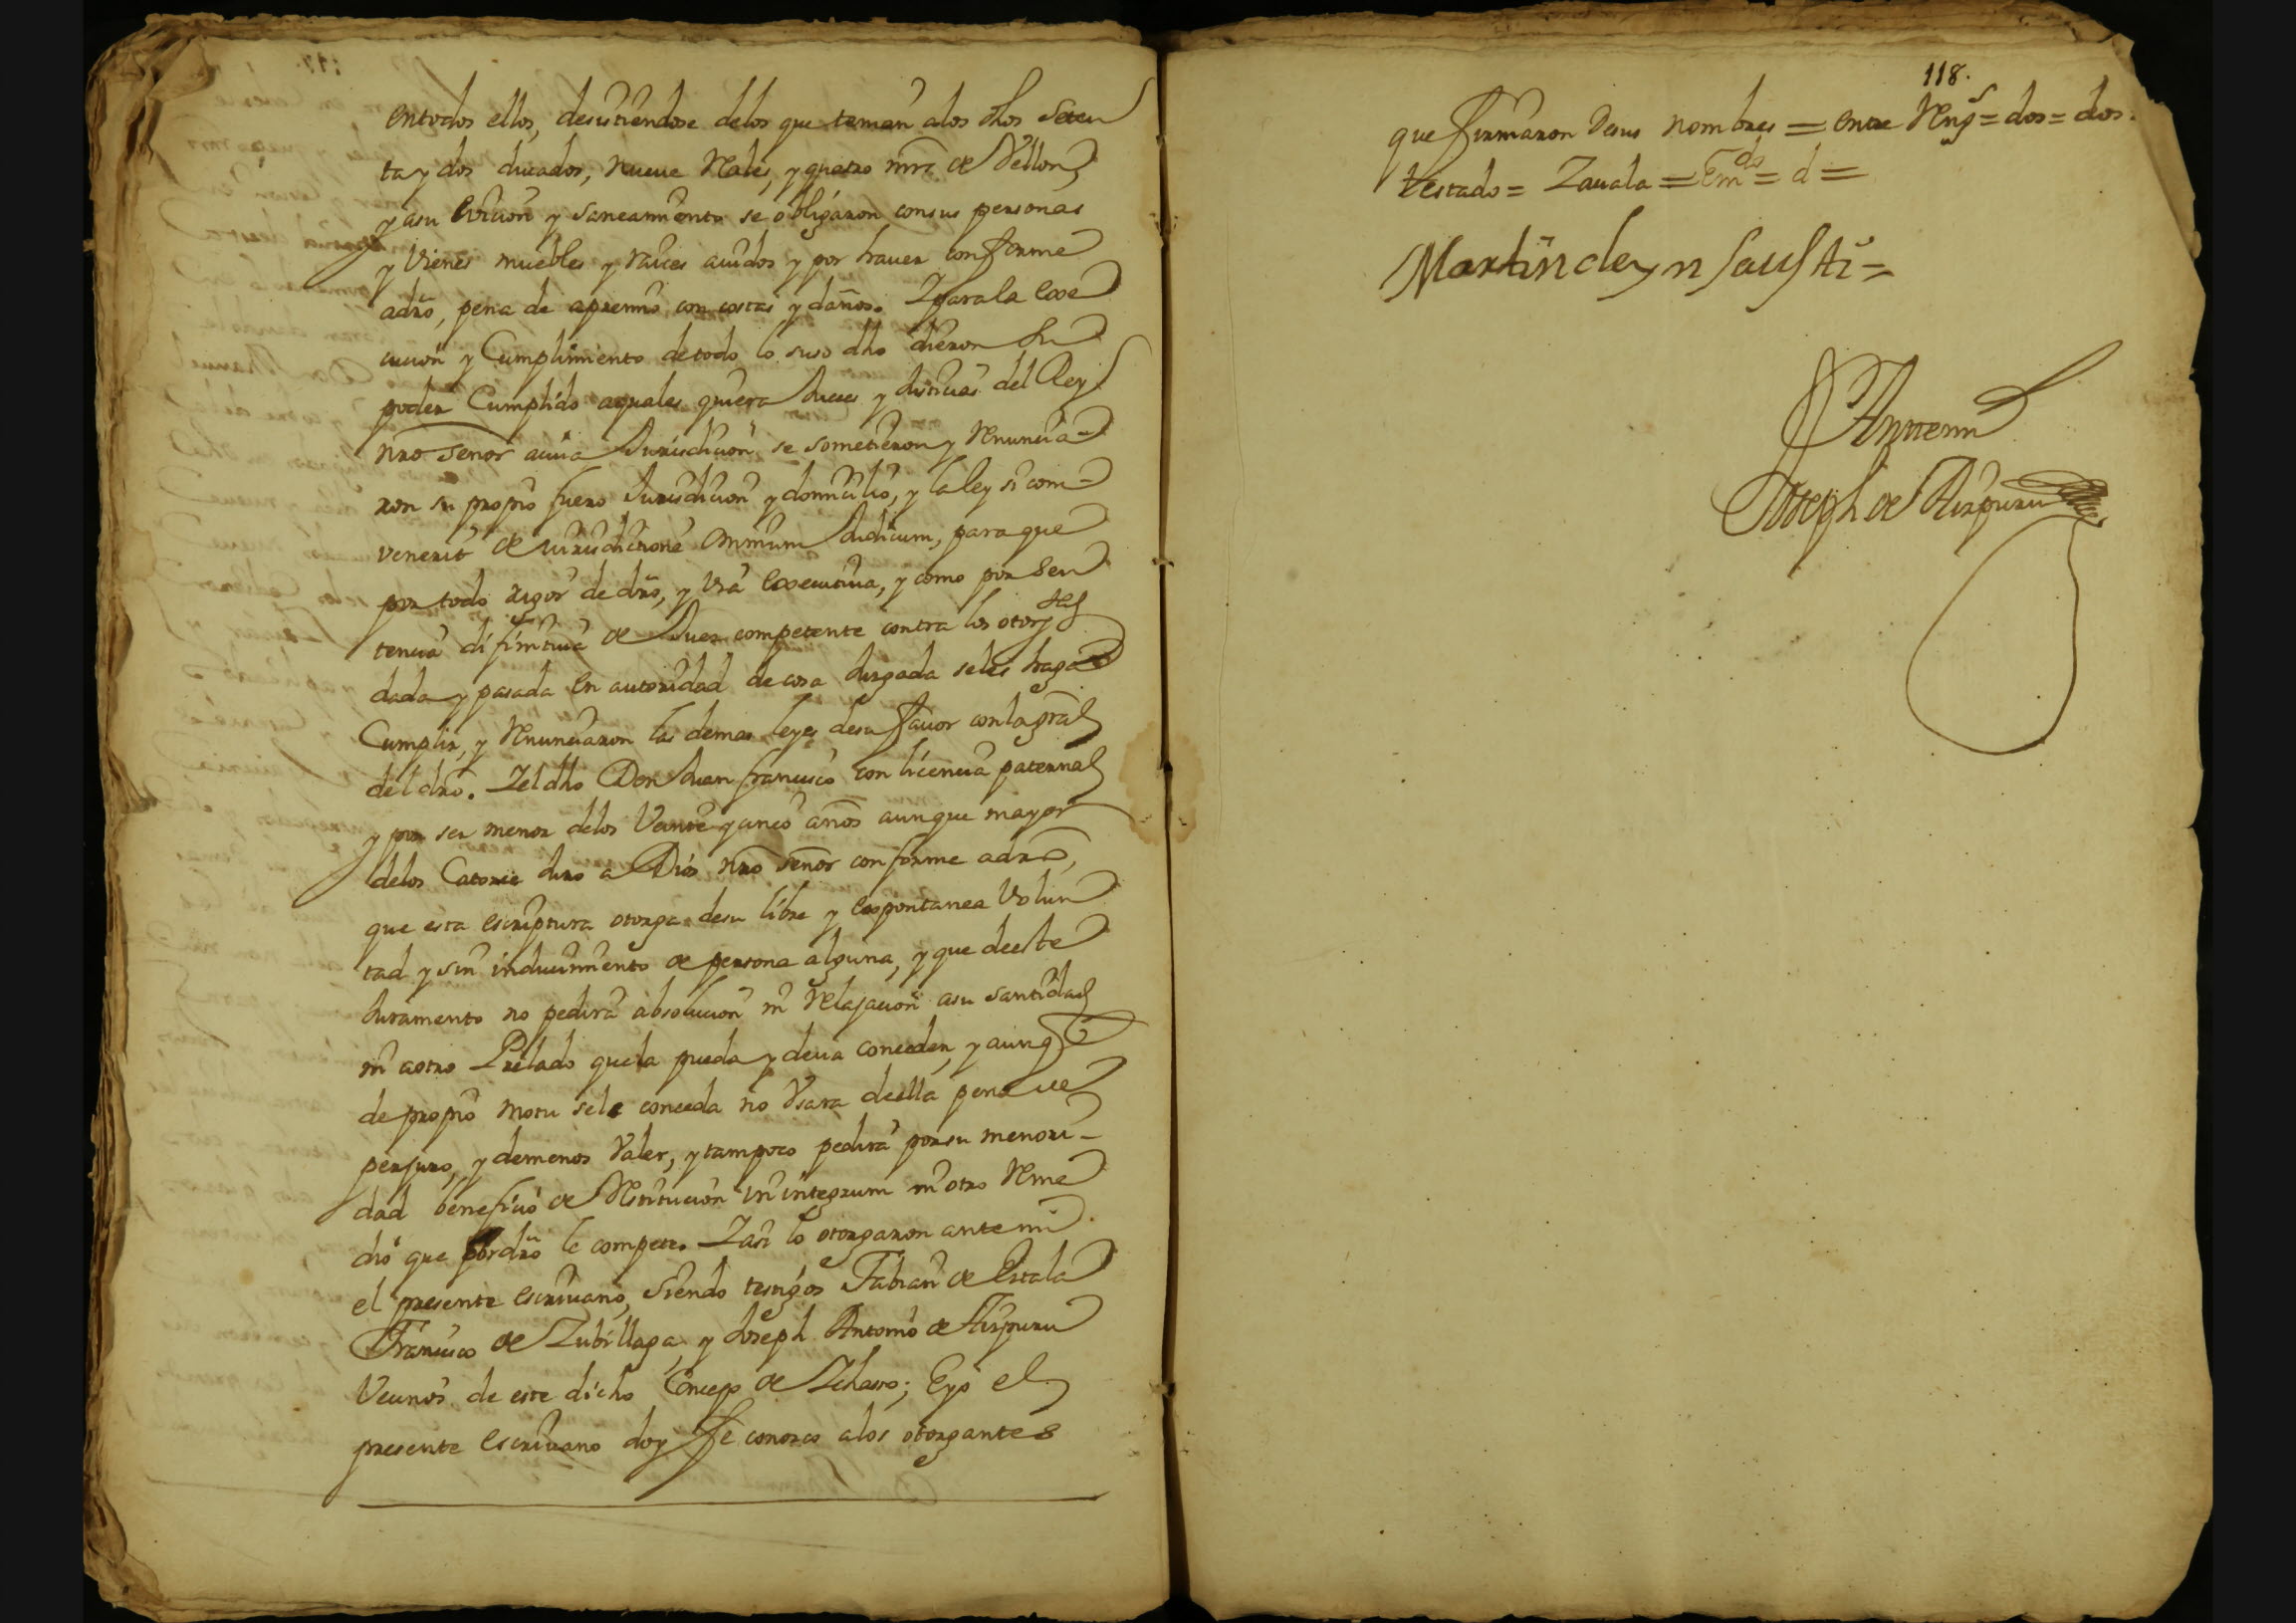 entodos ellos, desistiendose delos que teman alos dhos Seten
ta y dos ducados, nueve Reales, y quatro mrs de Vellon,
y asu evicion y saneamiento se obligaron consus personas
y Vienes muebles y raices auidos y por hauer conforme
adro, pena de apremio con costas y daños. Ypara la exe
cucion y Cumplimiento detodo lo suso dho dieron su
poder Cumplido aquales quiera Jueces y Justicias del Rey
nro señor acuia Jurisdicion se sometieron y Renuncia-
ron su propio fuero Jurisdicion y domicilio, y la ley si com-
venerit de jurisdictione omnium Judicum, para que
por todo rigor de dro, y via executiva, y como por sen
tencia difinitiva de Juez competente contra los otorgtes
dada y pasada en autoridad de cosa Juzgada seles haga
Cumplir, y Renunciaron las demas leyes desu fauor con la gral
del dro. Yel dho Don Juan francisco con licencia paternal
y por ser menor delos Veinte y cinco años aunque mayor
delos Catorce Juro a Dios nro señor conforme adro,
que esta escriptura otorga desu libre y espontanea Volun
tad y sin inducimiento de persona alguna, y que deeste
Juramento no pedira absolucion ni Relajacion asu santidad
ni aotro Prelado quela pueda y deua conceder, y aunq
de propio motu sele conceda no Vsara deella pena de
perjuro, y demenos Valer, y tampoco pedira porsu menori-
dad beneficio de Restitucion in integrum ni otro Reme
dio que por dro le compete. Yasi lo otorgaron ante mi
el presente escrivano, siendo testigos Fabian de Estala
Francisco de Zubillaga, y Joseph Antonio de Aizpuru
Vecinos de este dicho Concejo de Ichaso; Eyo el
presente escrivano doy fe conozco alos otorgantes
118.
que firmaron desus nombres = entre Rengs = dos = dos.
testado = Zauala = Emdo = d =
Martin de ynsausti =
Antemi
Joseph de Aizpuru